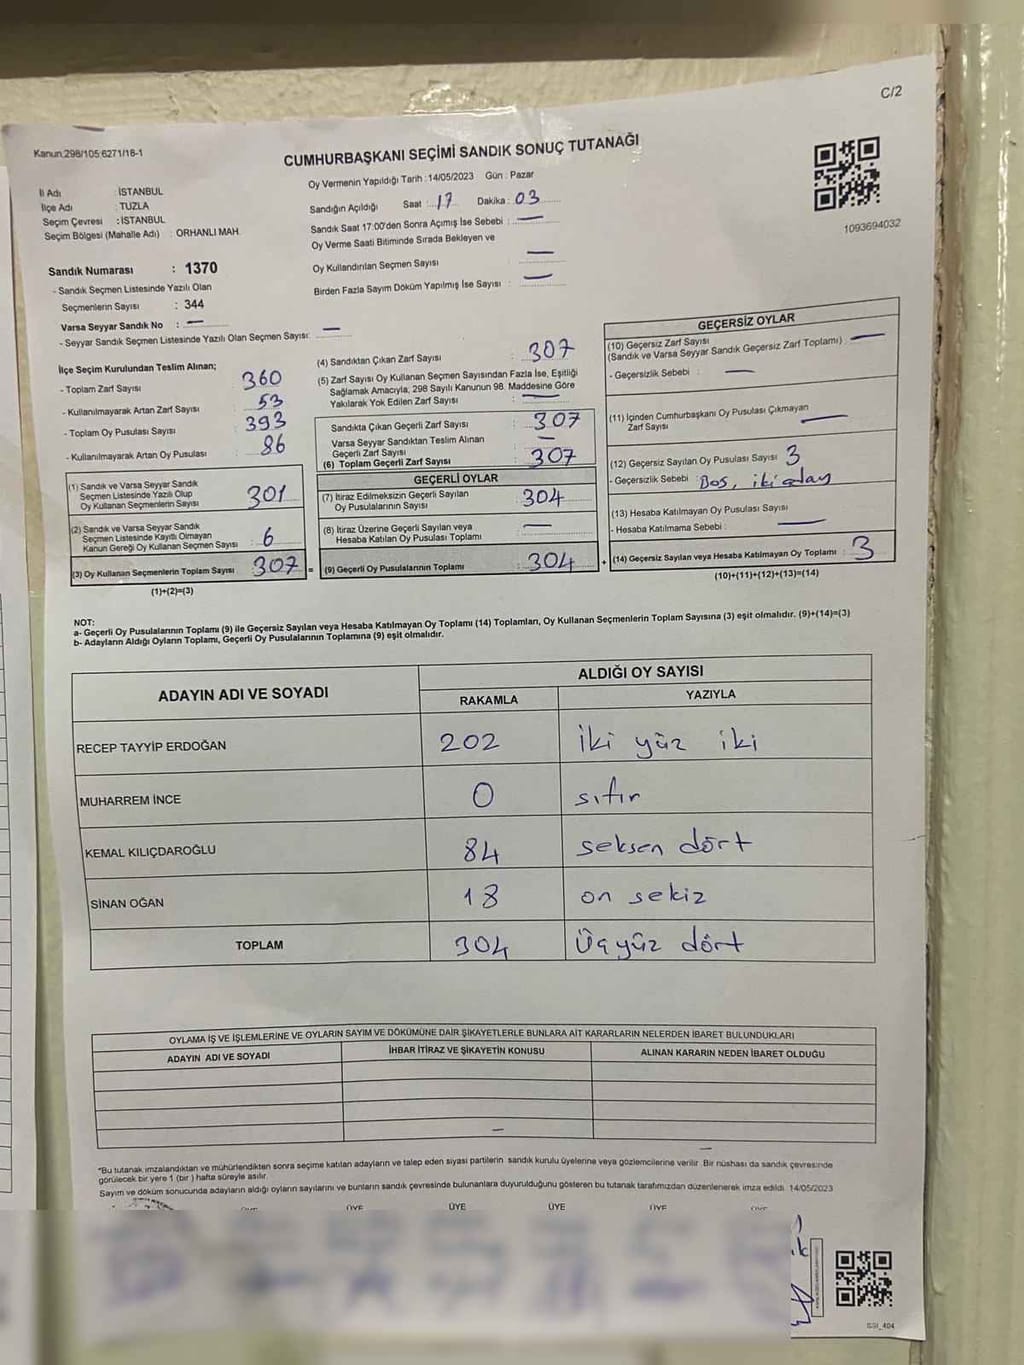 C/2
Kanun:298/105:6271/18-1
CUMHURBAŞKANI SEÇİMİ SANDIK SONUÇ TUTANAĞI
1093694032
İl Adı : İSTANBUL
İlçe Adı : TUZLA
Seçim Çevresi : İSTANBUL
Seçim Bölgesi (Mahalle Adı) : ORHANLI MAH.
Oy Vermenin Yapıldığı Tarih : 14/05/2023 Gün : Pazar
Sandığın Açıldığı Saat : 17 Dakika : 03
Sandık Saat 17:00'den Sonra Açımış İse Sebebi : —
Oy Verme Saati Bitiminde Sırada Bekleyen ve
Oy Kullandırılan Seçmen Sayısı —
Birden Fazla Sayım Döküm Yapılmış İse Sayısı : —
Sandık Numarası : 1370
- Sandık Seçmen Listesinde Yazılı Olan
Seçmenlerin Sayısı : 344
Varsa Seyyar Sandık No : —
- Seyyar Sandık Seçmen Listesinde Yazılı Olan Seçmen Sayısı: —
İlçe Seçim Kurulundan Teslim Alınan;
- Toplam Zarf Sayısı : 360
- Kullanılmayarak Artan Zarf Sayısı : 53
- Toplam Oy Pusulası Sayısı : 393
- Kullanılmayarak Artan Oy Pusulası : 86
(1) Sandık ve Varsa Seyyar Sandık
Seçmen Listesinde Yazılı Olup
Oy Kullanan Seçmenlerin Sayısı : 301
(2) Sandık ve Varsa Seyyar Sandık
Seçmen Listesinde Kayıtlı Olmayan
Kanun Gereği Oy Kullanan Seçmen Sayısı : 6
(3) Oy Kullanan Seçmenlerin Toplam Sayısı : 307 =
(1)+(2)=(3)
(4) Sandıktan Çıkan Zarf Sayısı : 307
(5) Zarf Sayısı Oy Kullanan Seçmen Sayısından Fazla İse, Eşitliği
Sağlamak Amacıyla, 298 Sayılı Kanunun 98. Maddesine Göre
Yakılarak Yok Edilen Zarf Sayısı : —
Sandıkta Çıkan Geçerli Zarf Sayısı : 307
Varsa Seyyar Sandıktan Teslim Alınan
Geçerli Zarf Sayısı : —
(6) Toplam Geçerli Zarf Sayısı : 307
GEÇERLİ OYLAR
(7) İtiraz Edilmeksizin Geçerli Sayılan
Oy Pusulalarının Sayısı : 304
(8) İtiraz Üzerine Geçerli Sayılan veya
Hesaba Katılan Oy Pusulası Toplamı : —
(9) Geçerli Oy Pusulalarının Toplamı : 304 +
GEÇERSİZ OYLAR
(10) Geçersiz Zarf Sayısı
(Sandık ve Varsa Seyyar Sandık Geçersiz Zarf Toplamı) : —
- Geçersizlik Sebebi : —
(11) İçinden Cumhurbaşkanı Oy Pusulası Çıkmayan
Zarf Sayısı —
(12) Geçersiz Sayılan Oy Pusulası Sayısı : 3
- Geçersizlik Sebebi : Boş, iki aday
(13) Hesaba Katılmayan Oy Pusulası Sayısı
- Hesaba Katılmama Sebebi : —
(14) Geçersiz Sayılan veya Hesaba Katılmayan Oy Toplamı : 3
(10)+(11)+(12)+(13)=(14)
NOT:
a- Geçerli Oy Pusulalarının Toplamı (9) ile Geçersiz Sayılan veya Hesaba Katılmayan Oy Toplamı (14) Toplamları, Oy Kullanan Seçmenlerin Toplam Sayısına (3) eşit olmalıdır. (9)+(14)=(3)
b- Adayların Aldığı Oyların Toplamı, Geçerli Oy Pusulalarının Toplamına (9) eşit olmalıdır.
ADAYIN ADI VE SOYADI ALDIĞI OY SAYISI
RAKAMLA YAZIYLA
RECEP TAYYİP ERDOĞAN 202 iki yüz iki
MUHARREM İNCE 0 sıfır
KEMAL KILIÇDAROĞLU 84 seksen dört
SİNAN OĞAN 18 on sekiz
TOPLAM 304 Üçyüz dört
OYLAMA İŞ VE İŞLEMLERİNE VE OYLARIN SAYIM VE DÖKÜMÜNE DAİR ŞİKAYETLERLE BUNLARA AİT KARARLARIN NELERDEN İBARET BULUNDUKLARI
ADAYIN ADI VE SOYADI İHBAR İTİRAZ VE ŞİKAYETİN KONUSU ALINAN KARARIN NEDEN İBARET OLDUĞU
*Bu tutanak imzalandıktan ve mühürlendikten sonra seçime katılan adayların ve talep eden siyasi partilerin sandık kurulu üyelerine veya gözlemcilerine verilir. Bir nüshası da sandık çevresinde
görülecek bir yere 1 (bir) hafta süreyle asılır.
Sayım ve döküm sonucunda adayların aldığı oyların sayılarını ve bunların sandık çevresinde bulunanlara duyurulduğunu gösteren bu tutanak tarafımızdan düzenlenerek imza edildi. 14/05/2023
ÜYE ÜYE ÜYE ÜYE